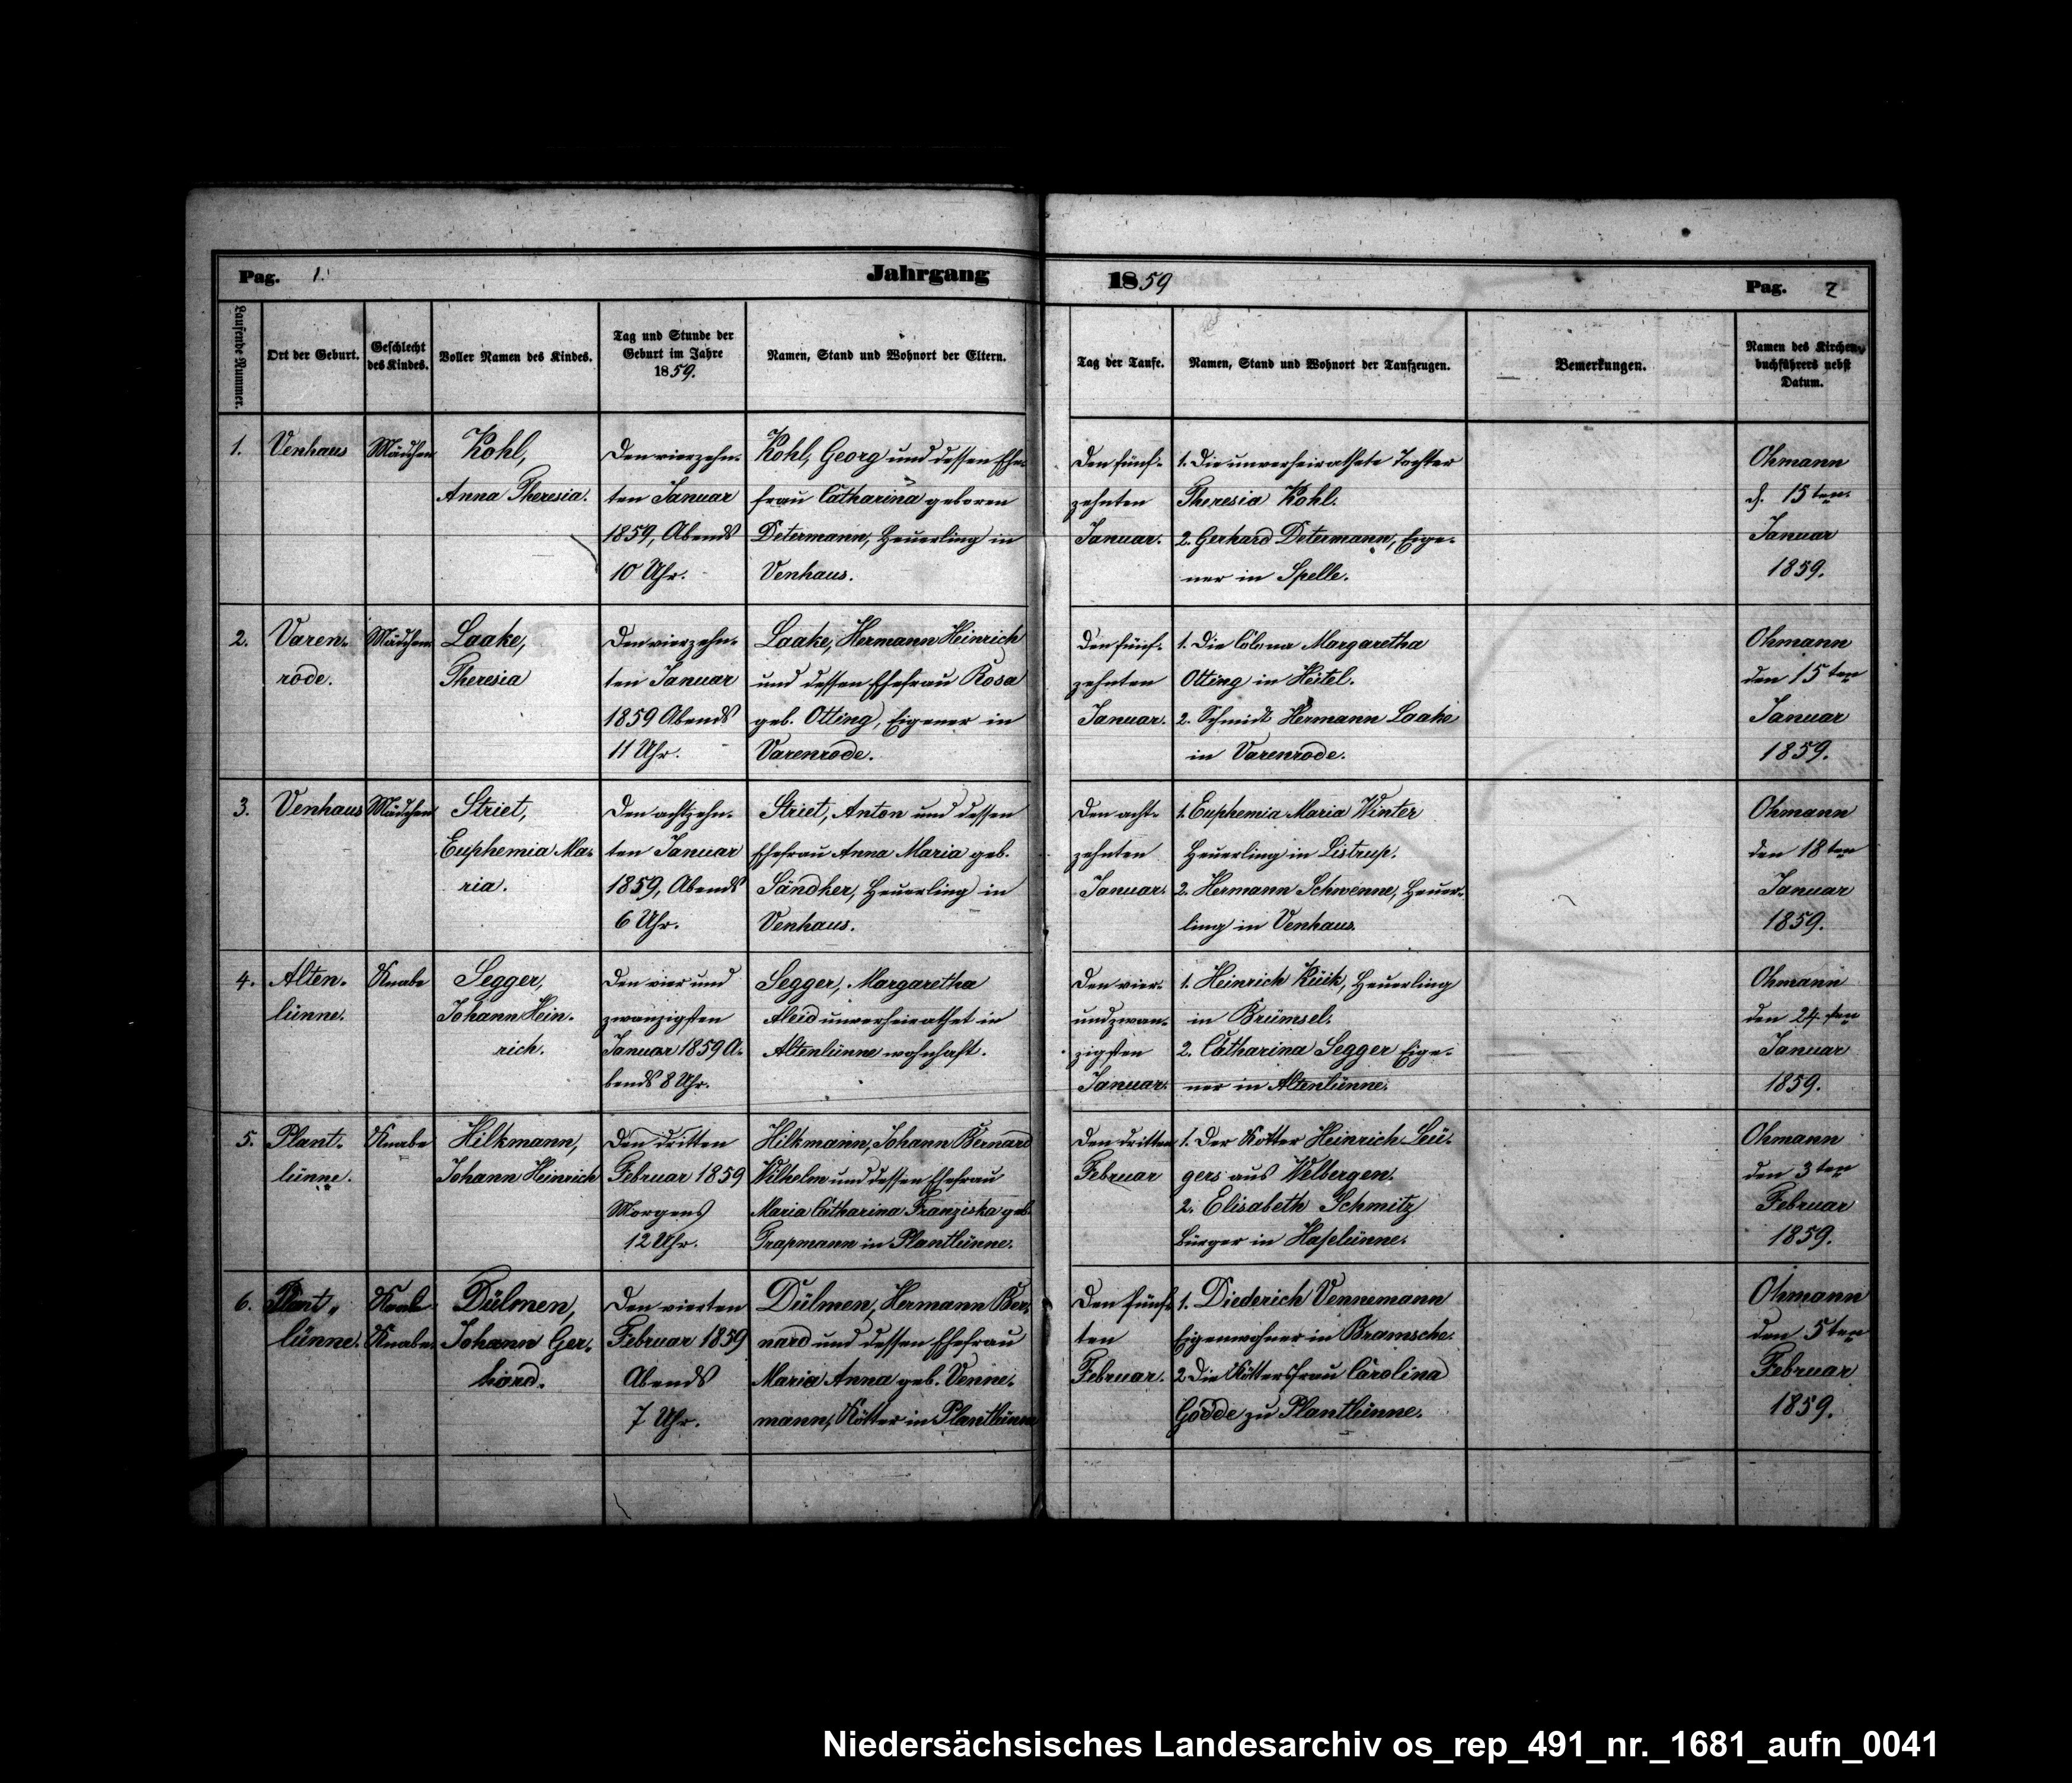 Pag. 1.
Jahrgang
1859
Pag. 2
Laufende Nummer.
Ort der Geburt.
Geschlecht
des Kindes.
Voller Namen des Kindes.
Tag und Stunde der
Geburt im Jahre
1859.
Namen, Stand und Wohnort der Eltern.
Tag der Taufe.
Namen, Stand und Wohnort der Taufzeugen.
Bemerkungen.
Namen des Kirchen-
buchführers nebst
Datum.
1.
Venhaus
Mädchen
Kohl,
Anna Theresia.
Den vierzehn-
ten Januar
1859, Abends
10 Uhr.
Kohl, Georg und dessen Ehe-
frau Catharina geboren
Determann, Heuerling in
Venhaus.
Den fünf-
zehnten
Januar.
1. Die unverheirathete Tochter
Theresia Kohl.
2. Gerhard Determann, Eige-
ner in Spelle.
Ohmann
d. 15ten
Januar
1859.
2.
Varen-
rode.
Mädchen
Laake,
Theresia
Den vierzehn-
ten Januar
1859 Abends
11 Uhr.
Laake, Hermann Heinrich
und dessen Ehefrau Rosa
geb. Otting, Eigener in
Varenrode.
Den fünf-
zehnten
Januar.
1. Die Colona Margaretha
Otting in Heitel.
2. Schmidt Hermann Laake
in Varenrode.
Ohmann
den 15ten
Januar
1859.
3.
Venhaus
Mädchen
Striet,
Euphemia Ma-
ria.
Den achtzehn-
ten Januar
1859, Abends
6 Uhr.
Striet, Anton und dessen
Ehefrau Anna Maria geb.
Sändker, Heuerling in
Venhaus.
Den acht-
zehnten
Januar.
1. Euphemia Maria Winter
Heuerling in Listrup.
2. Hermann Schwenne, Heuer-
ling in Venhaus.
Ohmann
den 18ten
Januar
1859.
4.
Alten-
lünne.
Knabe
Segger,
Johann Hein-
rich.
Den vier und
zwanzigsten
Januar 1859 A-
bends 8 Uhr.
Segger, Margaretha
Aleid unverheirathet in
Altenlünne wohnhaft.
Den vier-
undzwan-
zigsten
Januar.
1. Heinrich Küik, Heuerling
in Brümsel.
2. Catharina Segger Eige-
ner in Altenlünne.
Ohmann
den 24ten
Januar
1859.
5.
Plant-
lünne.
Knabe
Hilkmann,
Johann Heinrich
Den dritten
Februar 1859
Morgens
12 Uhr.
Hilkmann, Johann Bernard
Wilhelm und dessen Ehefrau
Maria Catharina Franziska geb.
Trapmann in Plantlünne.
Den dritten
Februar
1. Der Kötter Heinrich Leü-
gers aus Welbergen.
2. Elisabeth Schmitz
Bürger in Haselünne.
Ohmann
den 3ten
Februar
1859.
6.
Plant-
lünne.
Knabe
Knabe.
Dülmen,
Johann Ger-
hard.
Den vierten
Februar 1859
Abends
7 Uhr.
Dülmen, Hermann Ber-
nard und dessen Ehefrau
Maria Anna geb. Venne-
mann, Kötter in Plantlünne
Den fünf-
ten
Februar.
1. Diederich Vennemann
Eigenwohner in Bramsche.
2 Die Köttersfrau Carolina
Gödde zu Plantlünne.
Ohmann
den 5ten
Februar
1859.
Niedersächsisches Landesarchiv os_rep_491_nr._1681_aufn_0041